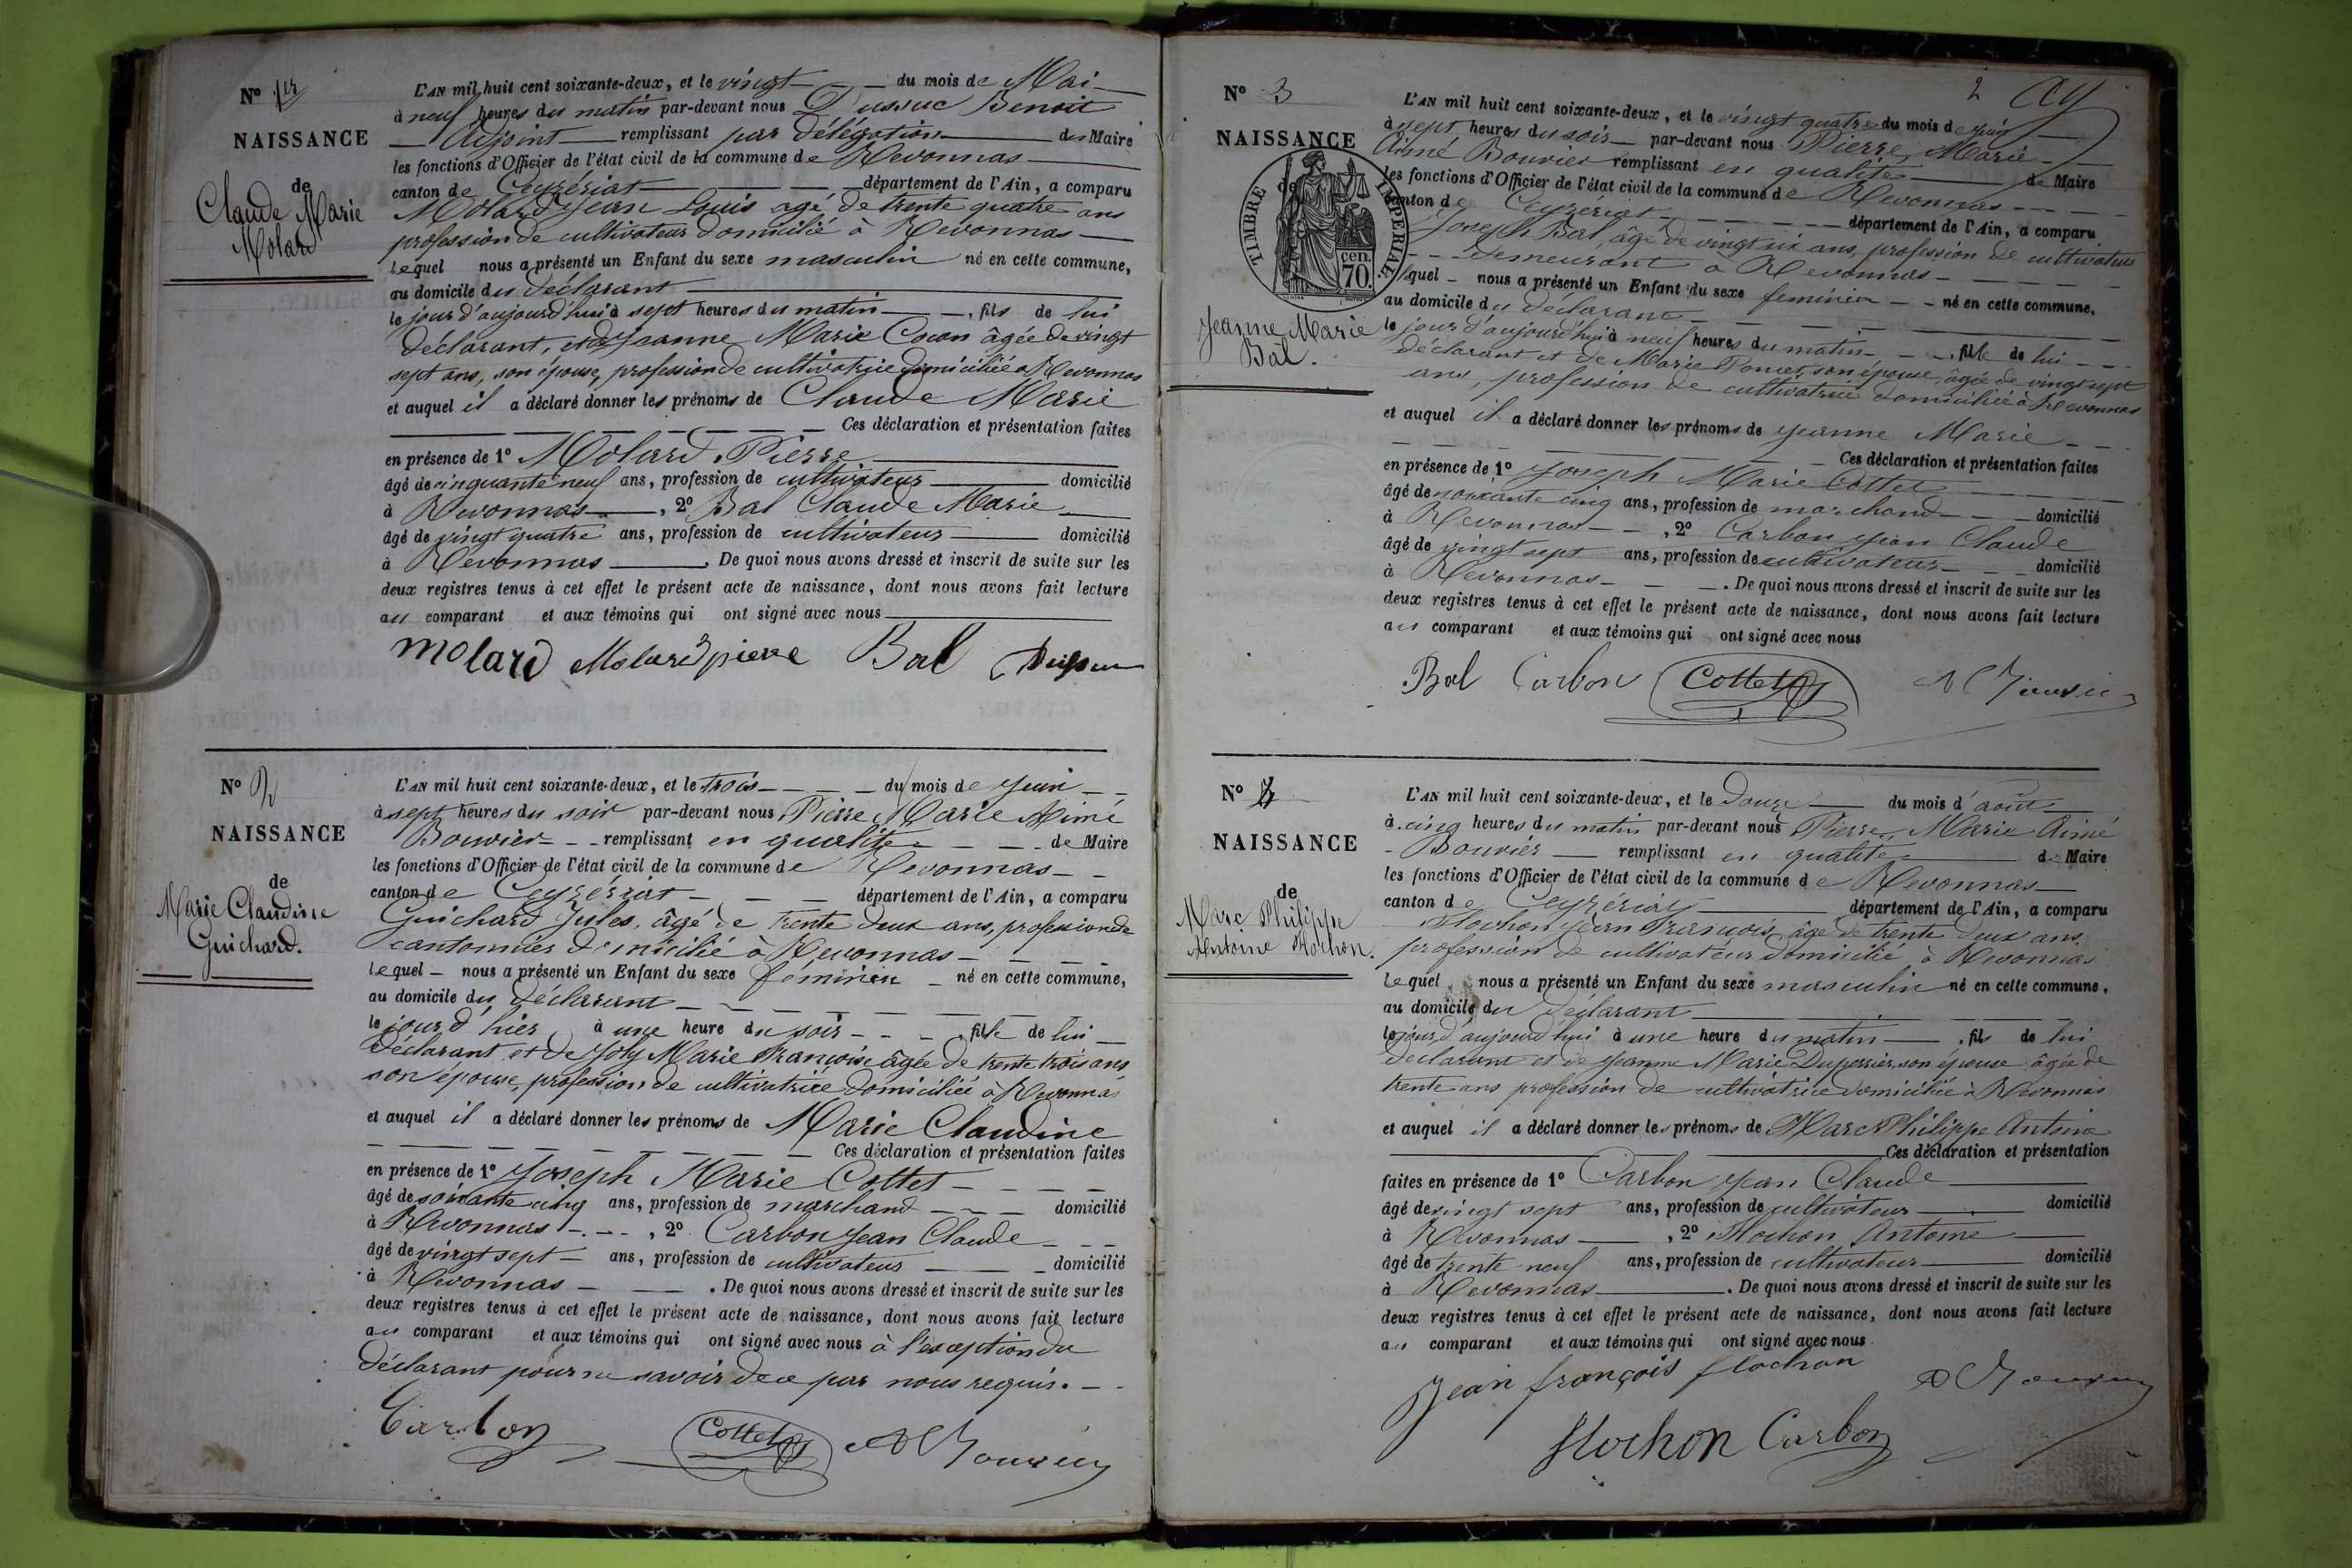 N° 1er
NAISSANCE
de
Claude Marie
Molard
L'AN mil huit cent soixante-deux, et le vingt du mois de Mai
à neuf heures du matin par-devant nous Dussuc Benoit
Adjoint remplissant par délégation du Maire
les fonctions d'Officier de l'état civil de la commune de Revonnas
canton de Ceyzériat département de l'Ain, a comparu
Molard Jean Louis agé de trente quatre ans
profession de cultivateur domicilié à Revonnas
Lequel nous a présenté un Enfant du sexe masculin né en cette commune,
au domicile du déclarant
le jour d'aujourd'hui à sept heures du matin, fils de lui
déclarant, et de Jeanne Marie Cocon âgée de vingt
sept ans, son épouse, profession de cultivatrice domiciliée à Revonnas
et auquel il a déclaré donner les prénoms de Claude Marie
Ces déclaration et présentation faites
en présence de 1° Molard Pierre
âgé de cinquante neuf ans, profession de cultivateur domicilié
à Revonnas, 2° Bal Claude Marie
âgé de vingt quatre ans, profession de cultivateur domicilié
à Revonnas. De quoi nous avons dressé et inscrit de suite sur les
deux registres tenus à cet effet le présent acte de naissance, dont nous avons fait lecture
au comparant et aux témoins qui ont signé avec nous
molard Molard pierre Bal Dussuc
N° 2
NAISSANCE
de
Marie Claudine
Guichard.
L'AN mil huit cent soixante-deux, et le trois du mois de Juin
à sept heures du soir par-devant nous Pierre Marie Aimé
Bouvier remplissant en qualité de Maire
les fonctions d'Officier de l'état civil de la commune de Revonnas
canton de Ceyzériat département de l'Ain, a comparu
Guichard Jules, âgé de trente deux ans, profession de
cantonnier domicilié à Revonnas
Lequel nous a présenté un Enfant du sexe féminin né en cette commune,
au domicile du déclarant
le jour d'hier, à une heure du soir, fille de lui
déclarant et de Joly Marie Françoise âgée de trente trois ans
son épouse, profession de cultivatrice domiciliée à Revonnas
et auquel il a déclaré donner les prénoms de Marie Claudine
Ces déclaration et présentation faites
en présence de 1° Joseph Marie Cottet
âgé de soixante cinq ans, profession de marchand domicilié
à Revonnas, 2° Carbon Jean Claude
âgé de vingt sept ans, profession de cultivateur domicilié
à Revonnas. De quoi nous avons dressé et inscrit de suite sur les
deux registres tenus à cet effet le présent acte de naissance, dont nous avons fait lecture
au comparant et aux témoins qui ont signé avec nous à l'exception du
déclarant pour ne savoir de ce par nous requis.
Carbon Cottet A Bouvier
2
N° 3
NAISSANCE
de
TIMBRE IMPERIAL
70 cen.
Jeanne Marie
Bal.
L'AN mil huit cent soixante-deux, et le vingt quatre du mois de juin
à sept heures du soir par-devant nous Pierre Marie
Aimé Bouvier remplissant en qualité de Maire
les fonctions d'Officier de l'état civil de la commune de Revonnas
canton de Ceyzériat département de l'Ain, a comparu
Joseph Bal, âgé de vingt six ans, profession de cultivateur
demeurant à Revonnas
Lequel nous a présenté un Enfant du sexe feminin né en cette commune,
au domicile du déclarant
le jour d'aujourd'hui à neuf heures du matin, fille de lui
déclarant et de Marie Poncet, son épouse, âgée de vingt sept
ans, profession de cultivatrice domiciliée à Revonnas
et auquel il a déclaré donner les prénoms de Jeanne Marie
Ces déclaration et présentation faites
en présence de 1° Joseph Marie Cottet
âgé de soixante cinq ans, profession de marchand domicilié
à Revonnas, 2° Carbon Jean Claude
âgé de vingt sept ans, profession de cultivateur domicilié
à Revonnas. De quoi nous avons dressé et inscrit de suite sur les
deux registres tenus à cet effet le présent acte de naissance, dont nous avons fait lecture
au comparant et aux témoins qui ont signé avec nous
Bal Carbon Cottet A Bouvier
N° 4
NAISSANCE
de
Marc Philippe
Antoine Flochon.
L'AN mil huit cent soixante-deux, et le douze du mois d'août
à cinq heures du matin par-devant nous Pierre Marie Aimé
Bouvier remplissant en qualité de Maire
les fonctions d'Officier de l'état civil de la commune de Revonnas
canton de Ceyzériat département de l'Ain, a comparu
Flochon Jean François, âgé de trente deux ans.
profession de cultivateur domicilié à Revonnas
Lequel nous a présenté un Enfant du sexe masculin né en cette commune,
au domicile du déclarant
le jour d'aujourd'hui à une heure du matin, fils de lui
déclarant et de Jeanne Marie Duperrier, son épouse âgée de
trente ans profession de cultivatrice domiciliée à Revonnas
et auquel il a déclaré donner les prénoms de Marc Philippe Antoine
Ces déclaration et présentation
faites en présence de 1° Carbon Jean Claude
âgé de vingt sept ans, profession de cultivateur domicilié
à Revonnas, 2° Flochon Antoine
âgé de trente neuf ans, profession de cultivateur domicilié
à Revonnas. De quoi nous avons dressé et inscrit de suite sur les
deux registres tenus à cet effet le présent acte de naissance, dont nous avons fait lecture
au comparant et aux témoins qui ont signé avec nous
Jean françois flochon A Bouvier
flochon Carbon